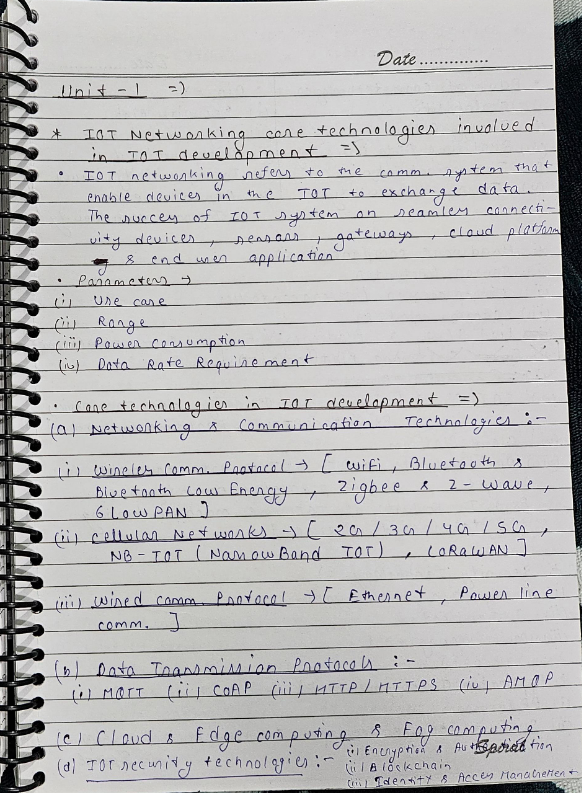 Date..............
Unit - 1 =>
* IOT Networking core technologies involved
in IOT development =>
• IOT networking refers to the comm. system that
enable devices in the IOT to exchange data.
The success of IOT system on seamless connecti-
vity devices, sensors, gateways, cloud platform
& end user application
• Parameters →
(i) Use case
(ii) Range
(iii) Power consumption
(iv) Data Rate Requirement
• Core technologies in IOT development =>
(a) Networking & Communication Technologies :-
(i) Wireless Comm. Protocol → [ WiFi, Bluetooth &
Bluetooth Low Energy, Zigbee & Z-wave,
6LowPAN ]
(ii) Cellular Networks → [ 2G / 3G / 4G / 5G,
NB-IOT (NarrowBand IOT), LORAWAN ]
(iii) Wired comm. Protocol → [ Ethernet, Power line
comm. ]
(b) Data Transmission Protocols :-
(i) MQTT (ii) COAP (iii) HTTP / HTTPS (iv) AMQP
(c) Cloud & Edge computing & Fog computing
(d) IOT security technologies :- (i) Encryption & Authentication
(ii) Blockchain
(iii) Identity & Access Management